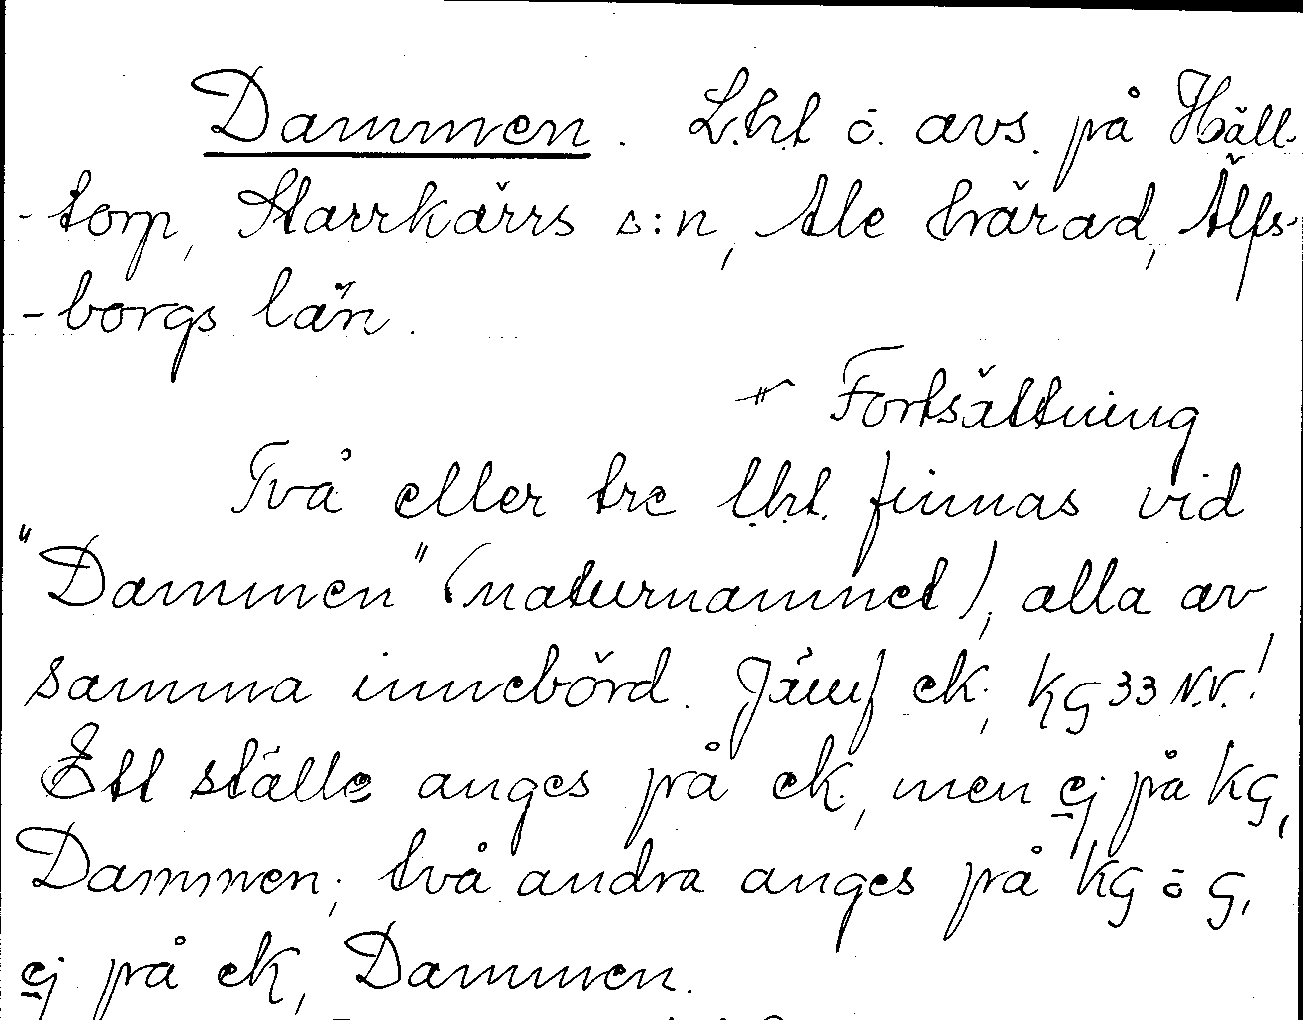 Dammen. L.h.t ö. avs. på Häll-
-torp, Starrkärrs s:n, Ale härad, Älfs-
-borgs län.
Fortsättning
Två eller tre l.h.t. finnas vid
"Dammen" (naturnamnet), alla av
samma innebörd. Jämf ek., KG 33 N.V.!
Ett ställe anges på ek., men ej på KG,
Dammen; två andra anges på KG ö G,
ej på ek, Dammen.